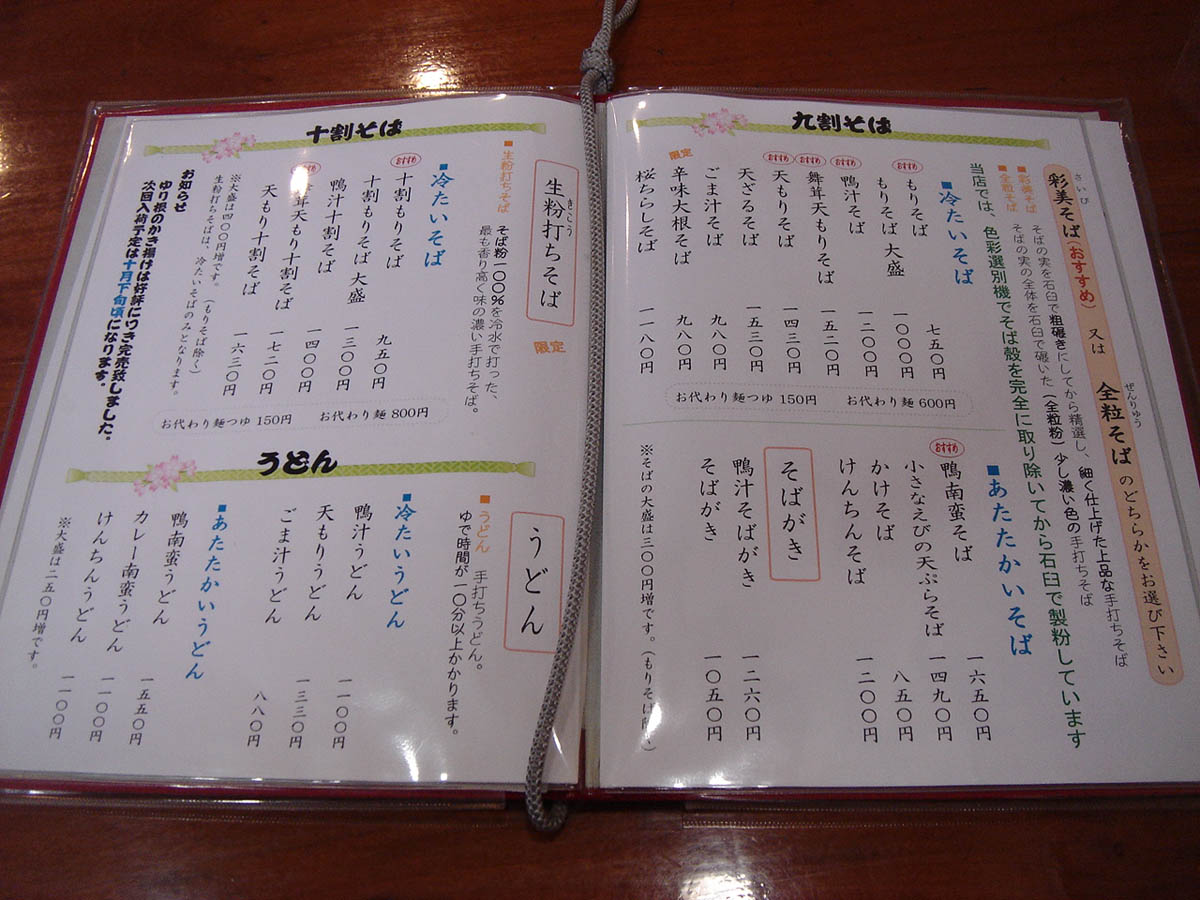 九割そば
さいび
彩美そば(おすすめ) 又は 全粒そばのどちらかをお選び下さい
ぜんりゅう
■彩美そば そばの実を石臼で粗碾きにしてから精選し、細く仕上げた上品な手打ちそば
■全粒そば そばの実の全体を石臼で碾いた(全粒粉)少し濃い色の手打ちそば
当店では、色彩選別機でそば殻を完全に取り除いてから石臼で製粉しています
■冷たいそば
おすすめ
もりそば 七五〇円
もりそば 大盛 一〇〇〇円
おすすめ
鴨汁そば 一二〇〇円
おすすめ
舞茸天もりそば 一五二〇円
おすすめ
天もりそば 一四三〇円
天ざるそば 一五三〇円
ごま汁そば 九八〇円
限定
辛味大根そば 九八〇円
桜ちらしそば 一一八〇円
お代わり麺つゆ 150円 お代わり麺 600円
■あたたかいそば
おすすめ
鴨南蛮そば 一六五〇円
小さなえびの天ぷらそば 一四九〇円
かけそば 八五〇円
けんちんそば 一二〇〇円
そばがき
鴨汁そばがき 一二六〇円
そばがき 一〇五〇円
※そばの大盛は三〇〇円増です。(もりそば
十割そば
きこう
生粉打ちそば
限定
■生粉打ちそば そば粉一〇〇%を冷水で打った、
最も香り高く味の濃い手打ちそば。
■冷たいそば
おすすめ
十割もりそば 九五〇円
十割もりそば 大盛 一三〇〇円
鴨汁十割そば 一四〇〇円
茸天もり十割そば 一七二〇円
天もり十割そば 一六三〇円
※大盛は四〇〇円増です。(もりそば除く)
生粉打ちそばは、冷たいそばのみとなります。
お知らせ
ゆり根のかき揚げは好評につき完売致しました。
次回入荷予定は十月下旬頃になります。
お代わり麺つゆ 150円 お代わり麺 800円
うどん
うどん
■うどん 手打ちうどん。
ゆで時間が一〇分以上かかります。
■冷たいうどん
鴨汁うどん 一一〇〇円
天もりうどん 一三三〇円
ごま汁うどん 八八〇円
■あたたかいうどん
鴨南蛮うどん 一五五〇円
カレー南蛮うどん 一一〇〇円
けんちんうどん 一一〇〇円
※大盛は二五〇円増です。